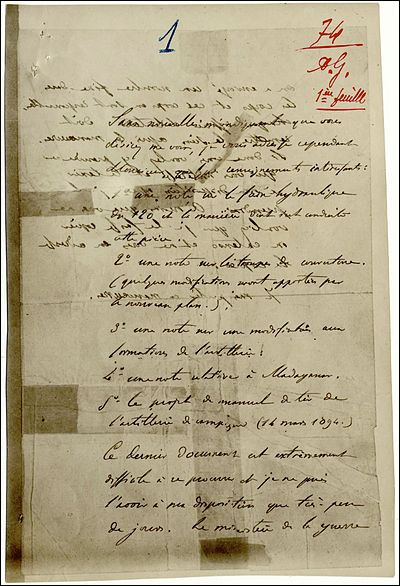 1
74
A.G.
1ère feuille
Sans nouvelles m'indiquant que vous
désirez me voir, je vous adresse cependant
Monsieur quelques renseignements intéressants :
1º une note sur le frein hydraulique
du 120 et la manière dont s'est conduite
cette pièce.
2º une note sur les troupes de couverture.
(quelques modifications seront apportées par
le nouveau plan.)
3º une note sur une modification aux
formations de l'artillerie :
4º une note relative à Madagascar.
5º le projet de manuel de tir de
l'artillerie de campagne (14 mars 1894.)
Ce dernier document est extrêmement
difficile à se procurer et je ne puis
l'avoir à ma disposition que très peu
de jours. Le ministère de la guerre